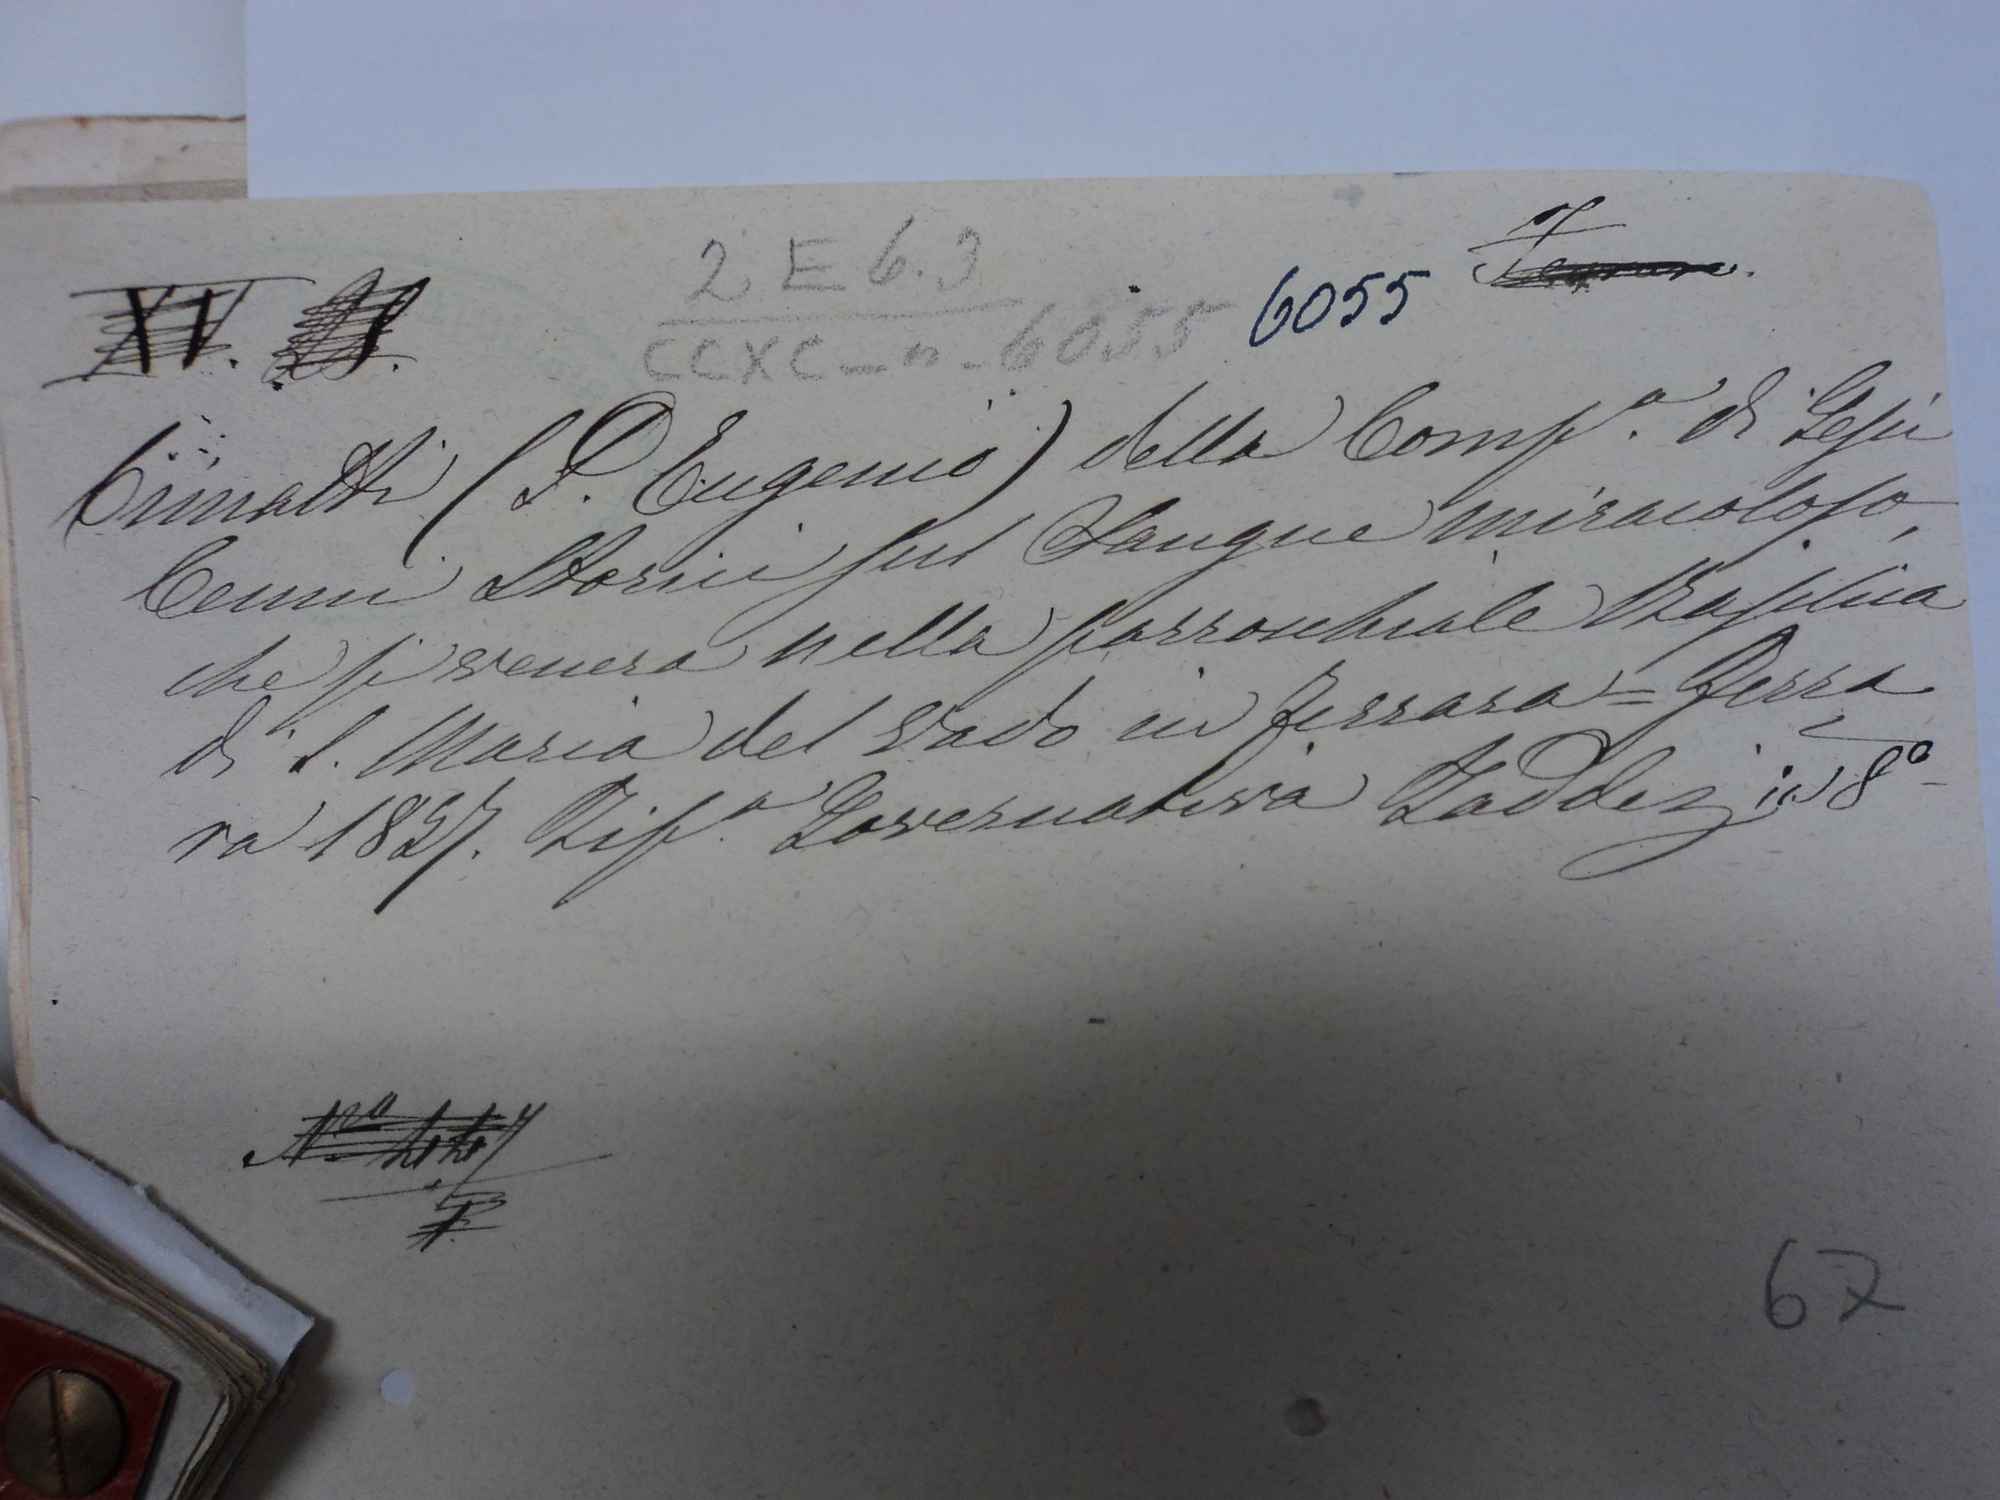 XV.
2 E 6.3
CCXC - n - 6055
6055
Ferrara.
(P. Eugenio) della Comp.a di Gesù
Cenni Storici sul Sangue miracoloso,
che si venera nella parrocchiale Basilica
di S. Maria del Vado in Ferrara = Ferra
ra 1857. Tip.a Governativa Taddei in 8°
67